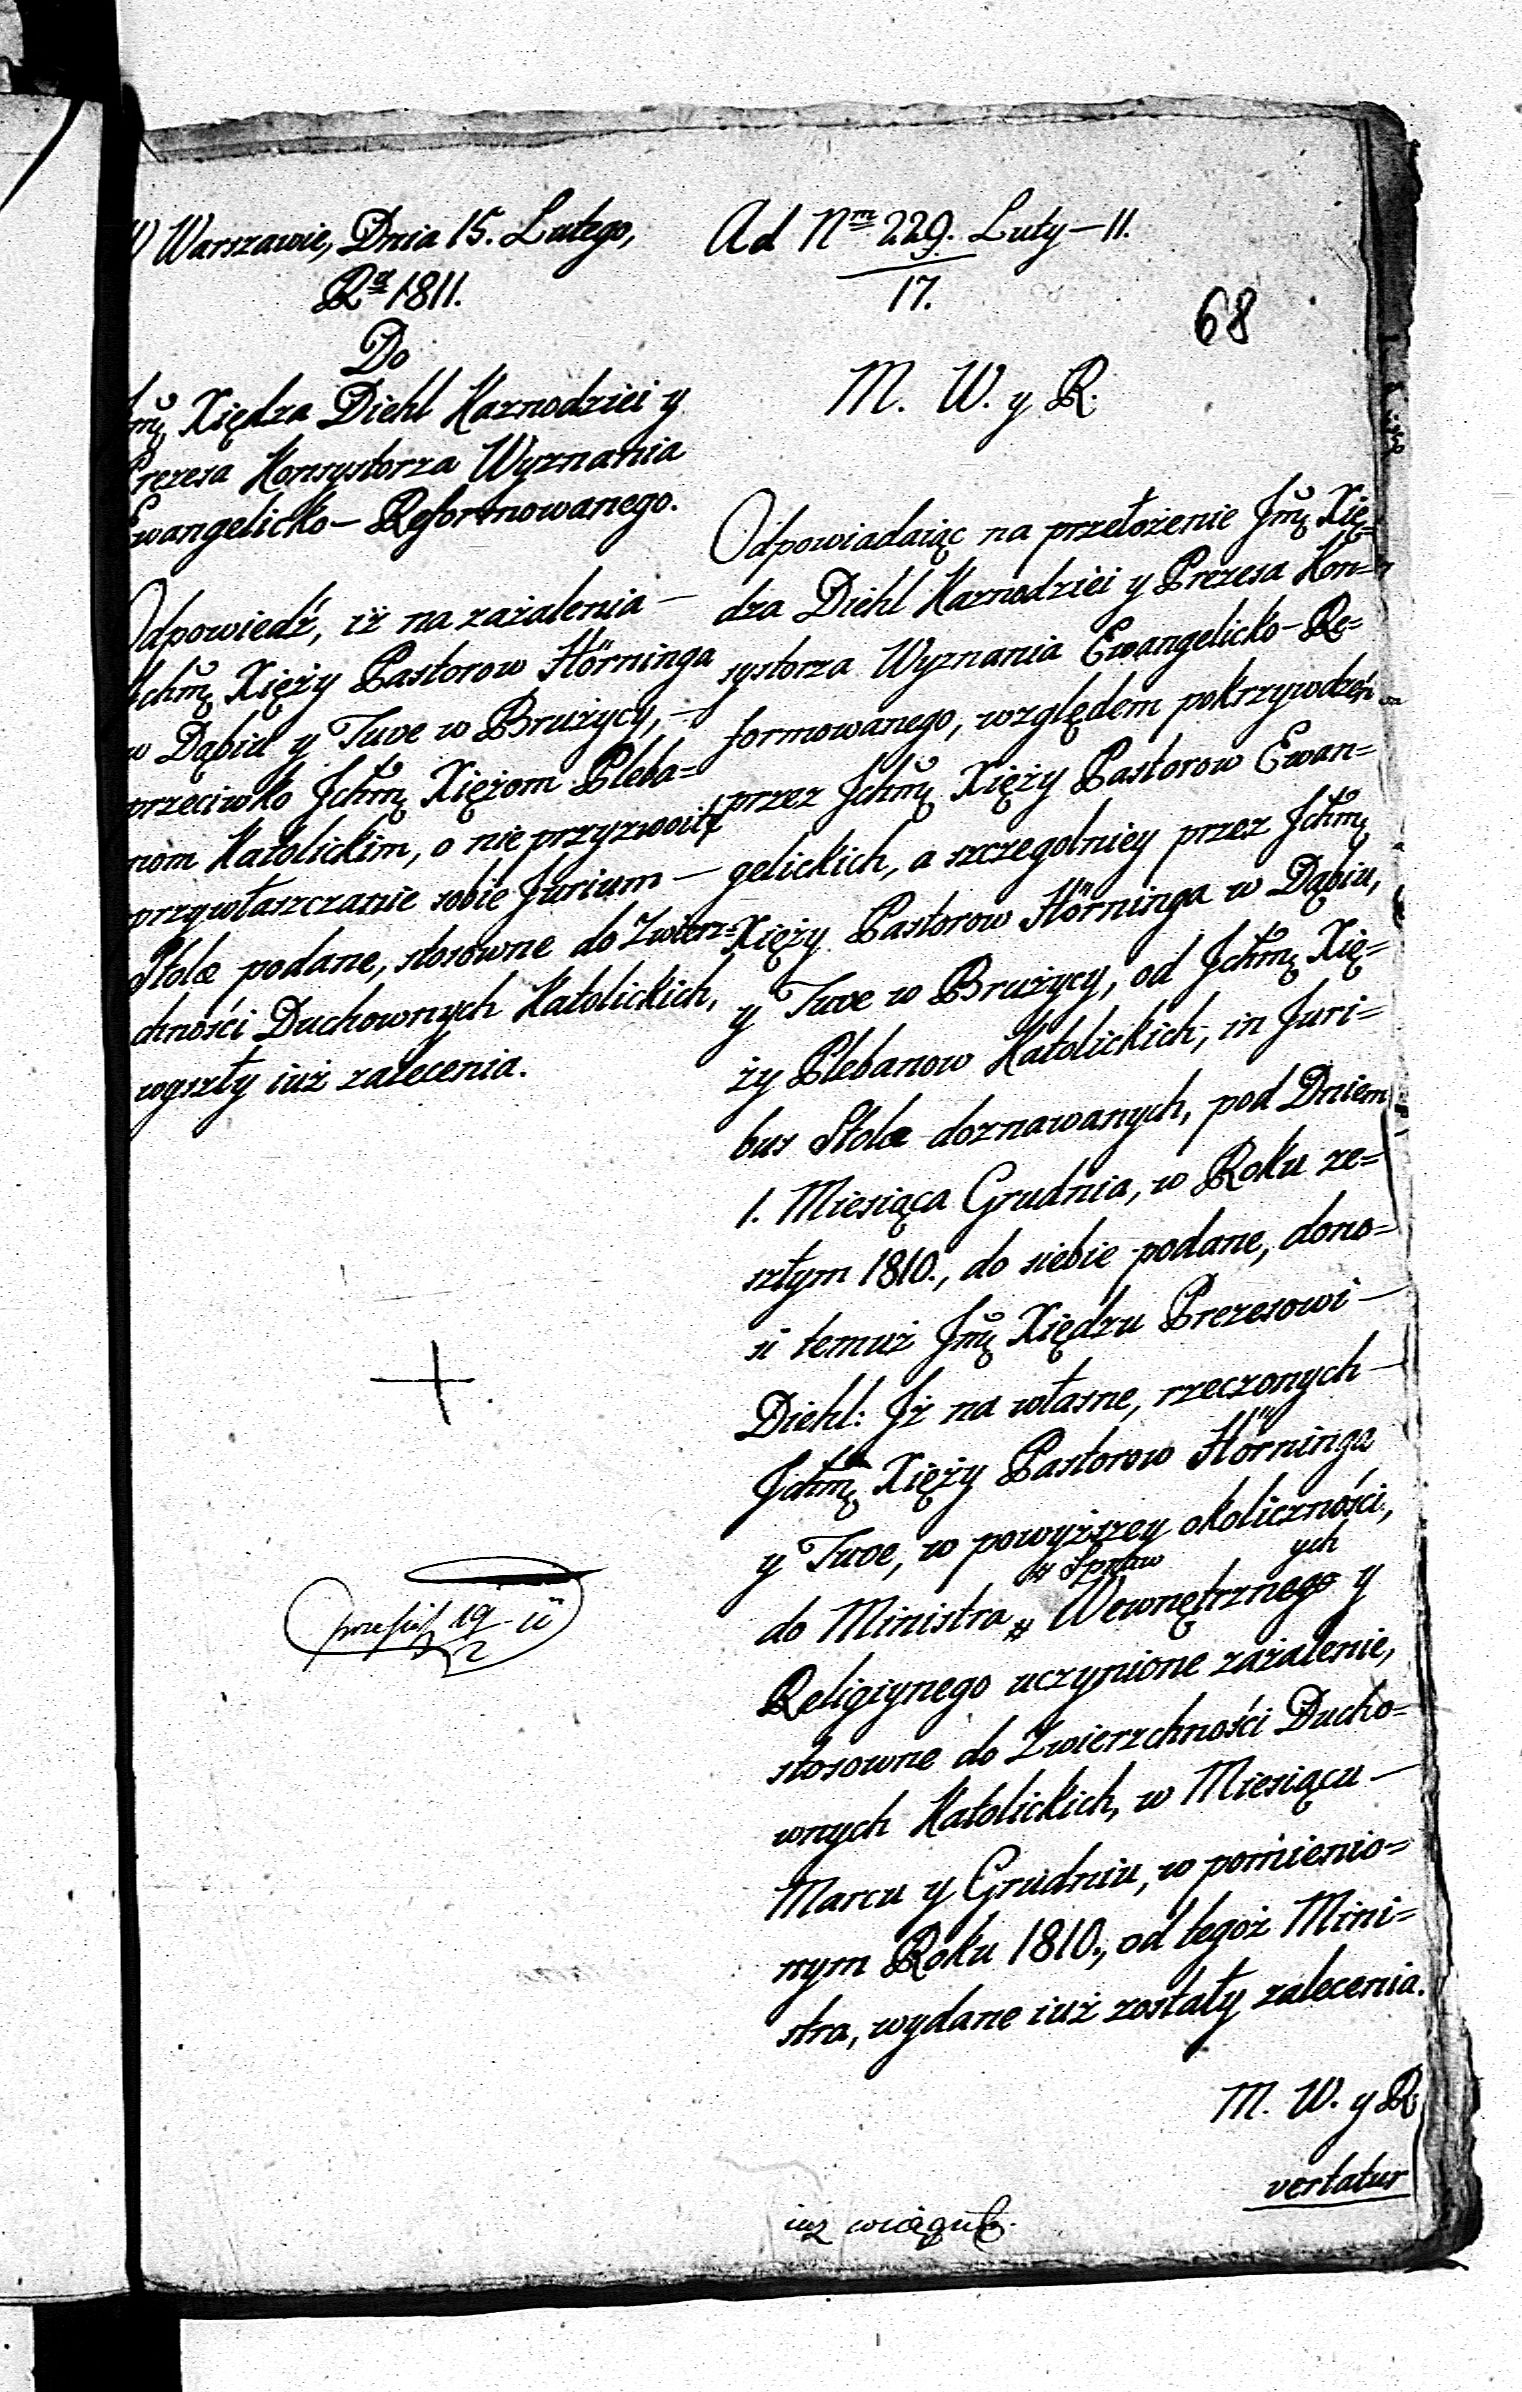 W Warszawie, Dnia 15. Lutego,
Ru 1811.
Do
Jmć Xiędza Diehl Kaznodziei y
Prezesa Konsystorza Wyznania
Ewangelicko – Reformowanego.
Odpowiedź, iż na zażalenia –
Jchmć Xięży Pastorow Hörninga
w Dąbiu y Tuve w Brużycy, –
przeciwko Jchmć Xiężom Pleba=
nom Katolickim, o nie przyzwoite
przywłaszczanie sobie Jurium –
Stolæ podane, stosowne do Zwierz=
chności Duchownych Katolickich,
wyszły iuż zalecenia.
19
2
Ad Nm 229. Luty – 11.
17.
68
M. W. y R.
Odpowiadaiąc na przełożenie Jmć Xię=
dza Diehl Kaznodziei y Prezesa Kon=
systorza Wyznania Ewangelicko – Re=
formowanego, względem pokrzywdzeń
przez Jchmć Xięży Pastorow Ewan=
gelickich, a szczegolniey przez Jchmć
Xięży Pastorow Hörninga w Dąbiu,
y Tuve w Brużycy, od Jchmć Xię=
ży Plebanow Katolickich, in Juri=
bus Stolæ doznawanych, pod Dniem
1. Miesiąca Grudnia, w Roku ze=
szłym 1810., do siebie podane, dono=
si temuż Jmć Xiędzu Prezesowi –
Diehl: Jż na własne, rzeczonych –
Jchmć Xięży Pastorow Hörninga
y Tuve, w powyższey okoliczności,
# Spraw ych
do Ministra # Wewnętrznego y
Religiynego uczynione zażalenie,
stosowne do Zwierzchności Ducho=
wnych Katolickich, w Miesiącu –
Marcu y Grudniu, w pomienio=
nym Roku 1810., od tegoż Mini=
stra, wydane iuż zostały zalecenia.
M. W. y R
vertatur
iuż